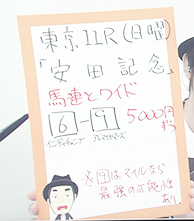 東京11R(日曜)
「安田記念」
馬連とワイド
6-9 5000円ずつ
インディチャンプ アエロリット
※6はマイルなら
最強の可能性
あり